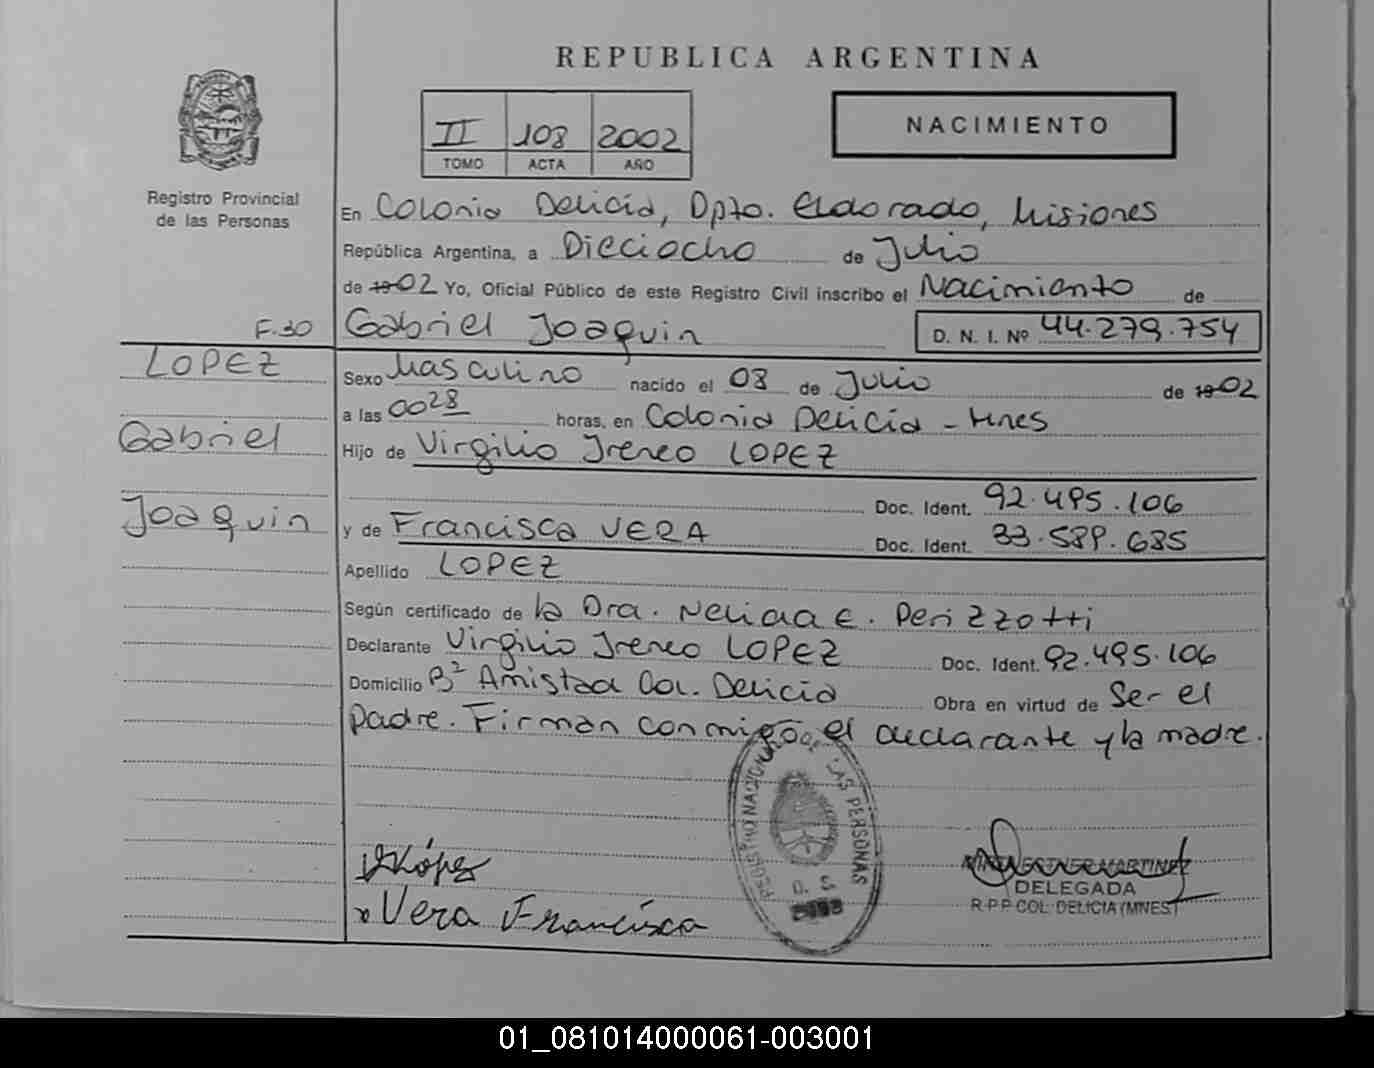 REPUBLICA ARGENTINA
II 108 2002
TOMO ACTA AÑO
NACIMIENTO
Registro Provincial
de las Personas
F.30
LOPEZ
Gabriel
Joaquin
En Colonia Delicia, Dpto. Eldorado, Misiones
República Argentina, a Dieciocho de Julio
de 19 02 Yo, Oficial Público de este Registro Civil inscribo el Nacimiento de
Gabriel Joaquin D. N. I. Nº 44.279.754
Sexo Masculino nacido el 08 de Julio de 19 02
a las 0028 horas, en Colonia Delicia - Mnes
Hijo de Virgilio Ireneo LOPEZ
Doc. Ident. 92.495.106
y de Francisca VERA Doc. Ident. 33.589.685
Apellido LOPEZ
Según certificado de la Dra. Nelida E. Perizzotti
Declarante Virgilio Ireneo LOPEZ Doc. Ident. 92.495.106
Domicilio Bº Amistad Col. Delicia Obra en virtud de Ser el
padre. Firman conmigo el declarante y la madre.
REGISTRO NACIONAL DE LAS PERSONAS
López
Vera Francisca
DELEGADA
R.P.P. COL. DELICIA (MNES.)
01_081014000061-003001